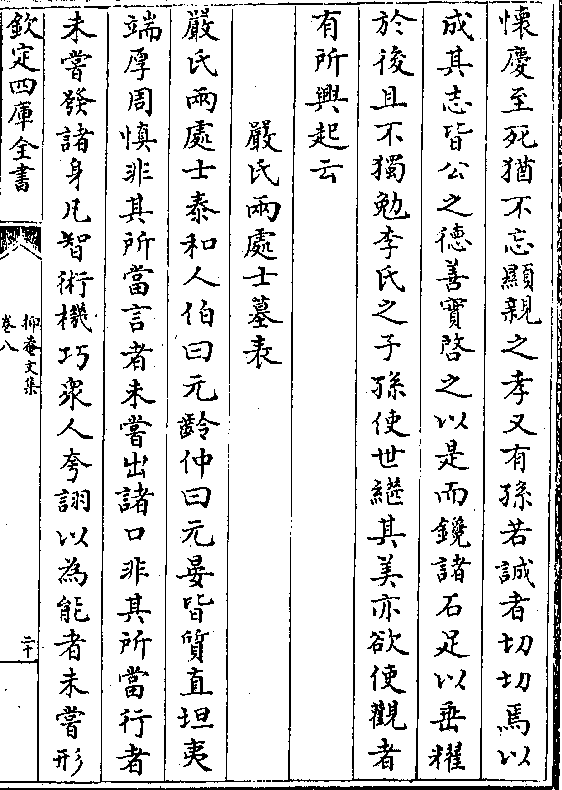 懷慶至死猶不忘顯親之孝又有孫若誠者切切焉以
成其志皆公之德善實啓之以是而鑱諸石足以垂耀
於後且不獨勉李氏之子孫使世繼其美亦欲使觀者
有所興起云
嚴氏兩處士墓表
嚴氏兩處士泰和人伯曰元齡仲曰元晏皆質直坦夷
端厚周慎非其所當言者未嘗出諸口非其所當行者
未嘗發諸身凡智術機巧衆人夸詡以為能者未嘗形
欽定四庫全書
抑菴文集
卷八
二十